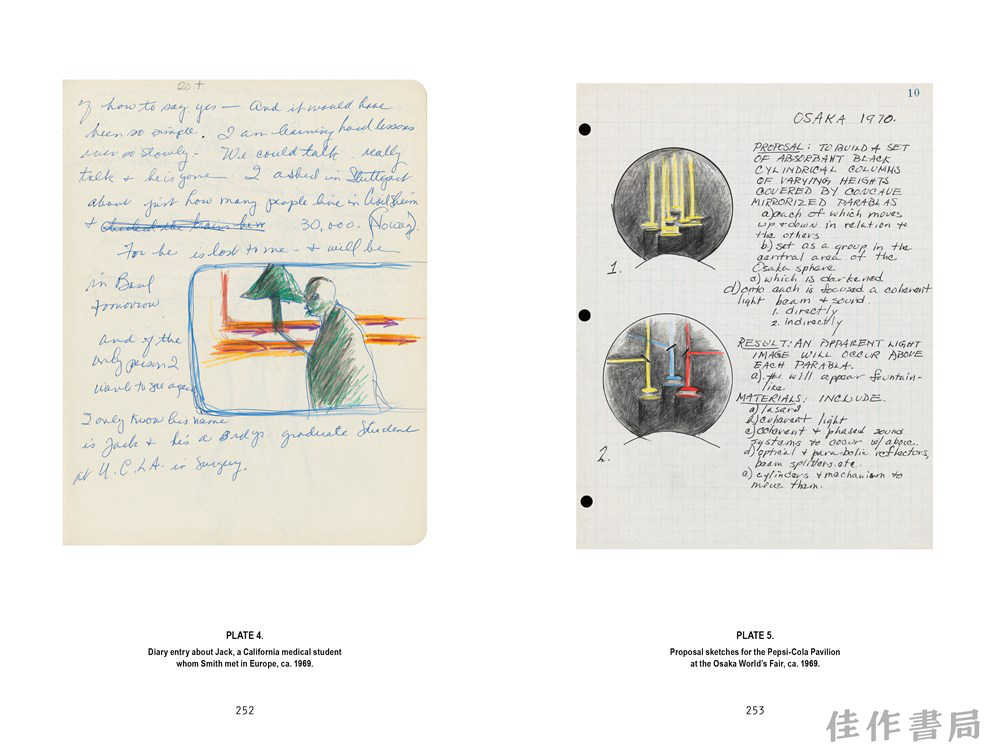 20+
of how to say yes — And it would have
been so simple. I am learning hard lessons
ever so slowly - We could talk really
talk & he is gone. I asked in Stuttgart
about just how many people live in
& 30,000.
For he is lost to me - & will be
in Basel
tomorrow
and of the
only person I
want to see again
I only know his name
is Jack & he's a 3rd yr. graduate student
at U.C.L.A. in Surgery.
PLATE 4.
Diary entry about Jack, a California medical student
whom Smith met in Europe, ca. 1969.
252
10
OSAKA 1970.
PROPOSAL: TO BUILD A SET
OF ABSORBANT BLACK
CYLINDRICAL COLUMNS
OF VARYING HEIGHTS
COVERED BY CONCAVE
MIRRORIZED PARABLAS
a) each of which moves
up & down in relation to
the others
b) set as a group in the
central area of the
Osaka sphere
c) which is darkened
d) onto each is focused a coherent
light beam & sound.
1. directly
2. indirectly
1.
RESULT: AN APPARENT LIGHT
IMAGE WILL OCCUR ABOVE
EACH PARABLA.
a). #1 will appear fountain-
like.
MATERIALS: INCLUDE.
a) lasers
b) coherent light
c) coherent & phased sound
systems to occur w/ above.
d) optical & parabolic reflectors,
beam splitters. etc.
e) cylinders & mechanism to
move them.
2.
PLATE 5.
Proposal sketches for the Pepsi-Cola Pavilion
at the Osaka World's Fair, ca. 1969.
253
佳作書局